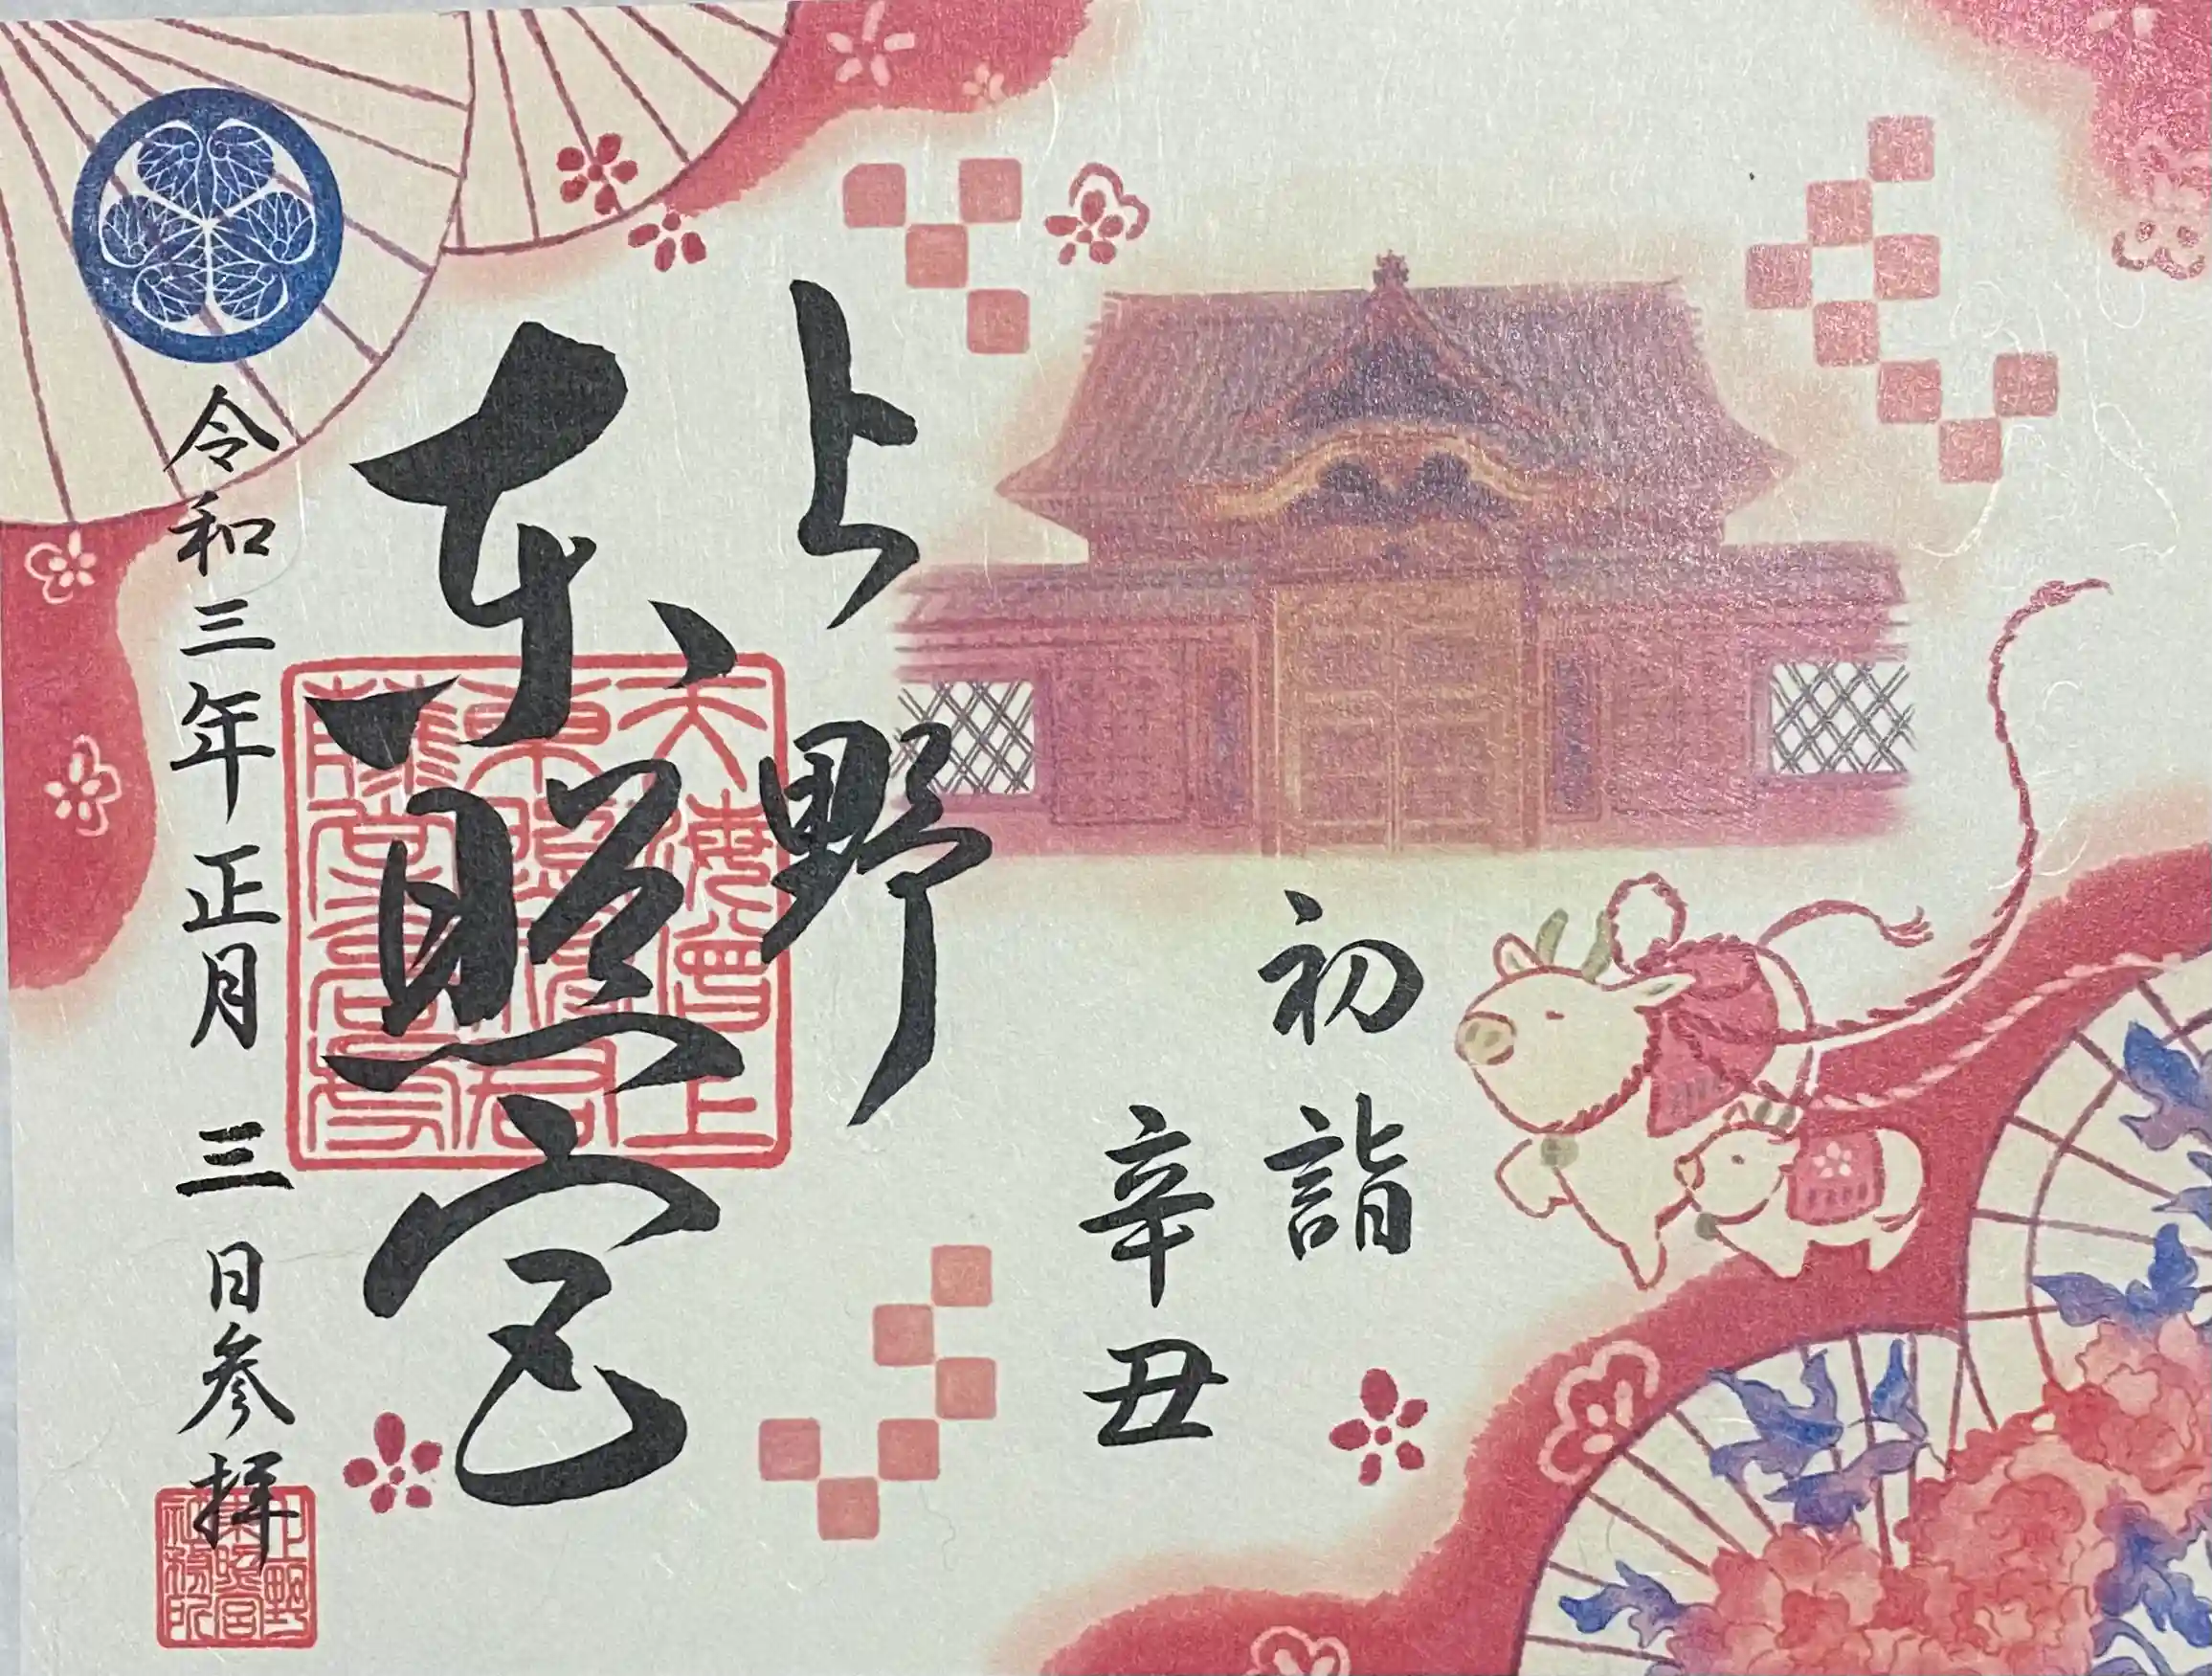 初詣
辛丑
上野
東照宮
令和三年正月三日参拝
上野
東照宮
社務所